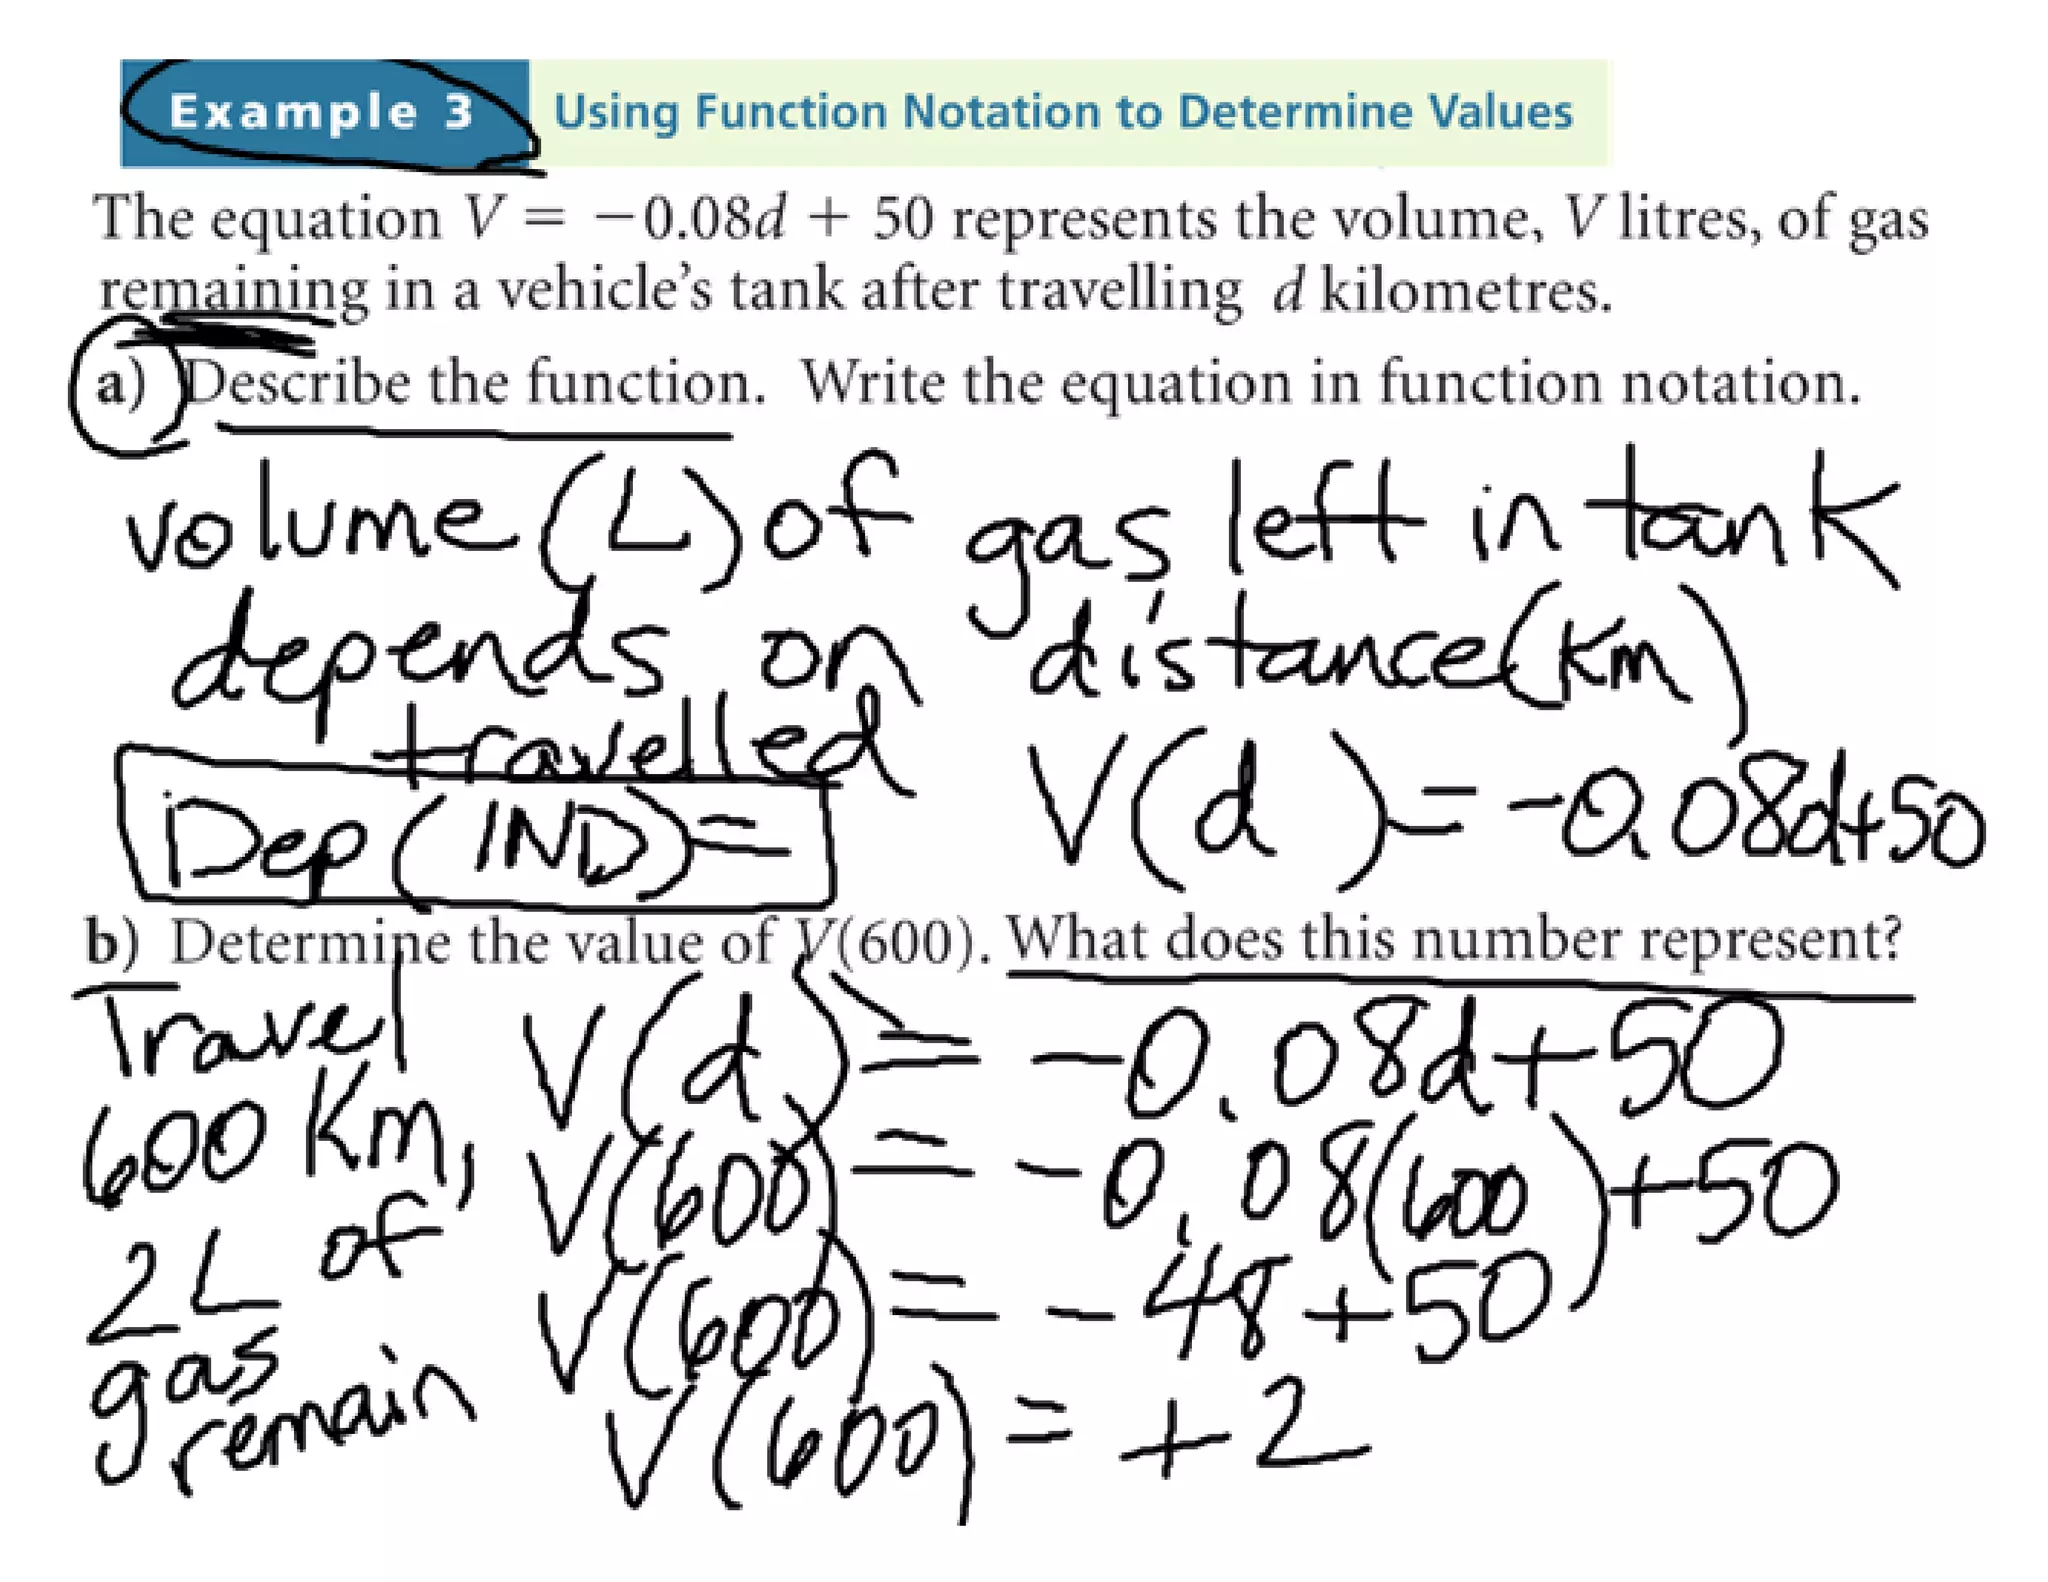 Example 3 Using Function Notation to Determine Values
The equation V = −0.08d + 50 represents the volume, V litres, of gas
remaining in a vehicle's tank after travelling d kilometres.
a) Describe the function. Write the equation in function notation.
volume (L) of gas left in tank
depends on distance (km)
travelled
Dep (IND) =
V(d) = -0.08d+50
b) Determine the value of V(600). What does this number represent?
Travel
600 km,
2L of
gas
remain
V(d) = -0.08d+50
V(600) = -0.08(600)+50
V(600) = -48+50
V(600) = +2